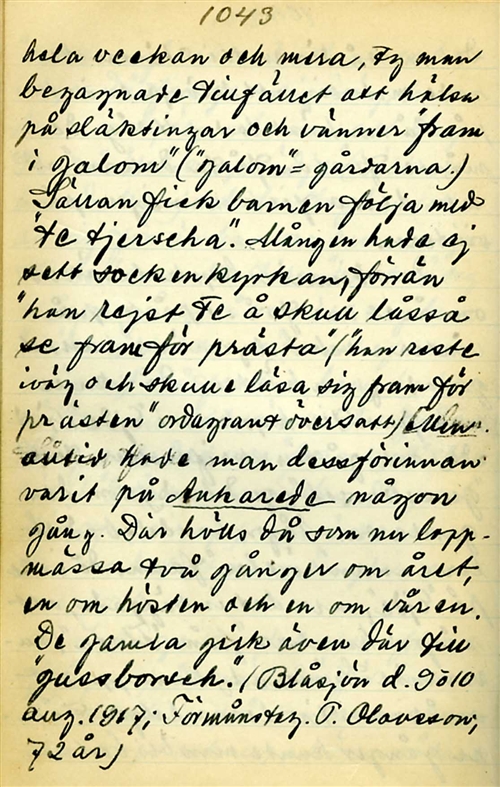 1043
hela veckan och mera, ty man
begagnade tillfället att hälsa
på släktingar och vänner "fram
i galom" ("galom" = gårdarna.)
Sällan fick barnen följa med
"te tjerscha". Mången hade ej
sett sockenkyrkan, förrän
"han rejst te å skull låsså
se fram för prästa" ("han reste
iväg och skulle läsa sig fram för
prästen" ordagrant översatt)
alltid hade man dessförinnan
varit på Ankarede någon
gång. Där hölls då som nu lapp-
mässa två gånger om året,
en om hösten och en om våren.
De gamla gick även där till
"gussborsch." (Blåsjön d. 9 o 10
aug. 1917; Förmånstag. P. Olovsson,
72 år)